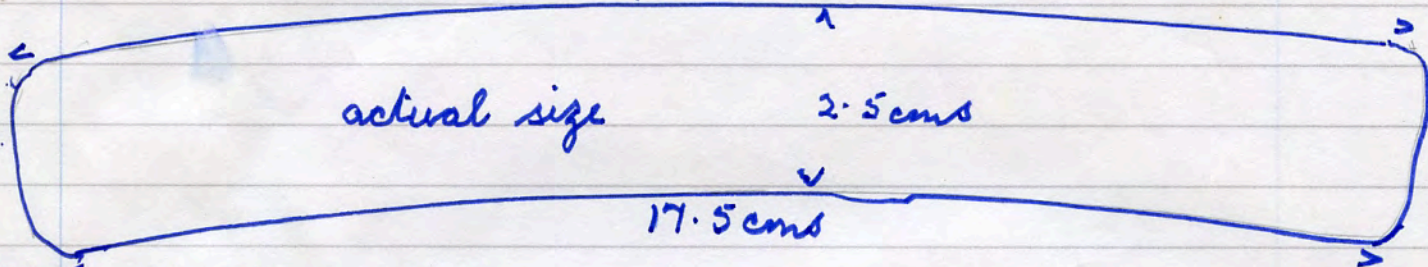 actual size 2.5cms
17.5cms